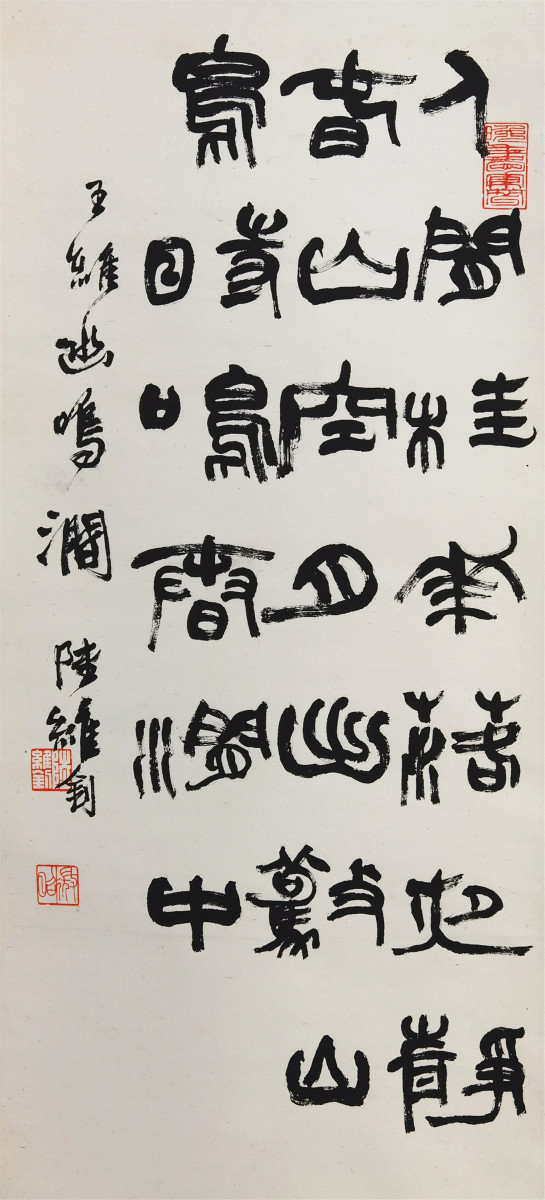 人間桂華落夜靜
春山空月出驚山
鳥時鳴春澗中
王維幽鳴澗 陸維釗